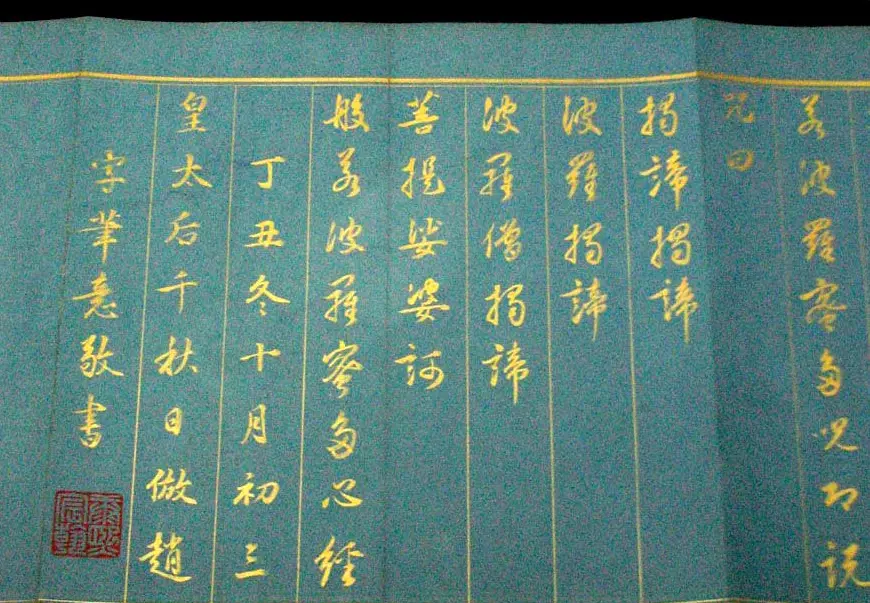 若波羅蜜多呪即說
咒曰
揭諦揭諦
波羅揭諦
波羅僧揭諦
菩提娑婆訶
般若波羅蜜多心經
丁丑冬十月初三
皇太后千秋日倣趙
字筆意敬書
康熙宸翰